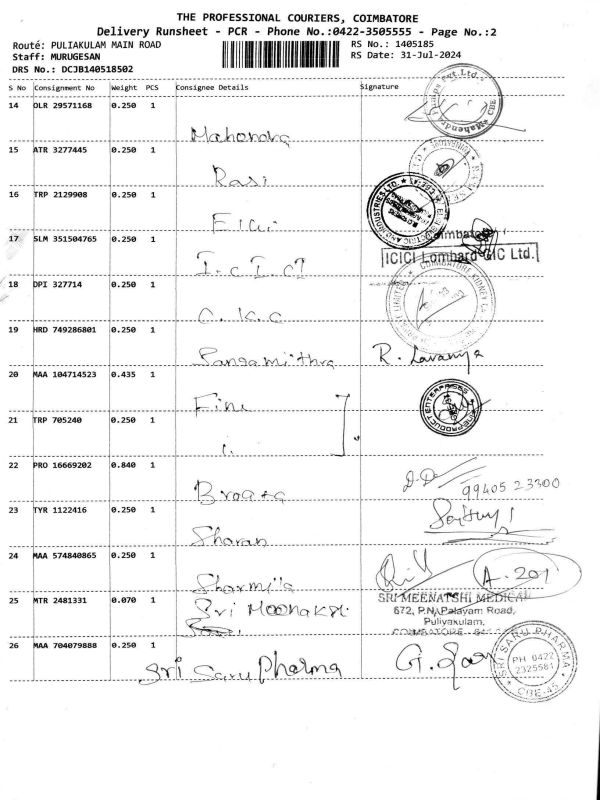 THE PROFESSIONAL COURIERS, COIMBATORE
Delivery Runsheet - PCR - Phone No.:0422-3505555 - Page No.:2
Route: PULIAKULAM MAIN ROAD
RS No.: 1405185
Staff: MURUGESAN
RS Date: 31-Jul-2024
DRS No.: DCJB140518502
S No Consignment No Weight PCS Consignee Details Signature
14 OLR 29571168 0.250 1
Mahendra
15 ATR 3277445 0.250 1
Rasi
16 TRP 2129908 0.250 1
17 SLM 351504765 0.250 1
Coimbatore
ICICI Lombard GIC Ltd.
I.c I.cI
18 DPI 327714 0.250 1
C.K.C
COIMBATORE KIDNEY
19 HRD 749286801 0.250 1
Sangamithra R. Lavanya
20 MAA 104714523 0.435 1
Fine
21 TRP 705240 0.250 1
i.
22 PRO 16669202 0.840 1
99405 23300
23 TYR 1122416 0.250 1
Sharan
24 MAA 574840865 0.250 1
A-201
Sharmila
25 MTR 2481331 0.070 1
SRI MEENATSHI MEDICAL
Sri Meenakshi
672, P.N. Palayam Road,
Puliyakulam,
26 MAA 704079888 0.250 1
Sri Saru Pharma
SRI SARU PHARMA
PH 0422
2325581
CBE-45